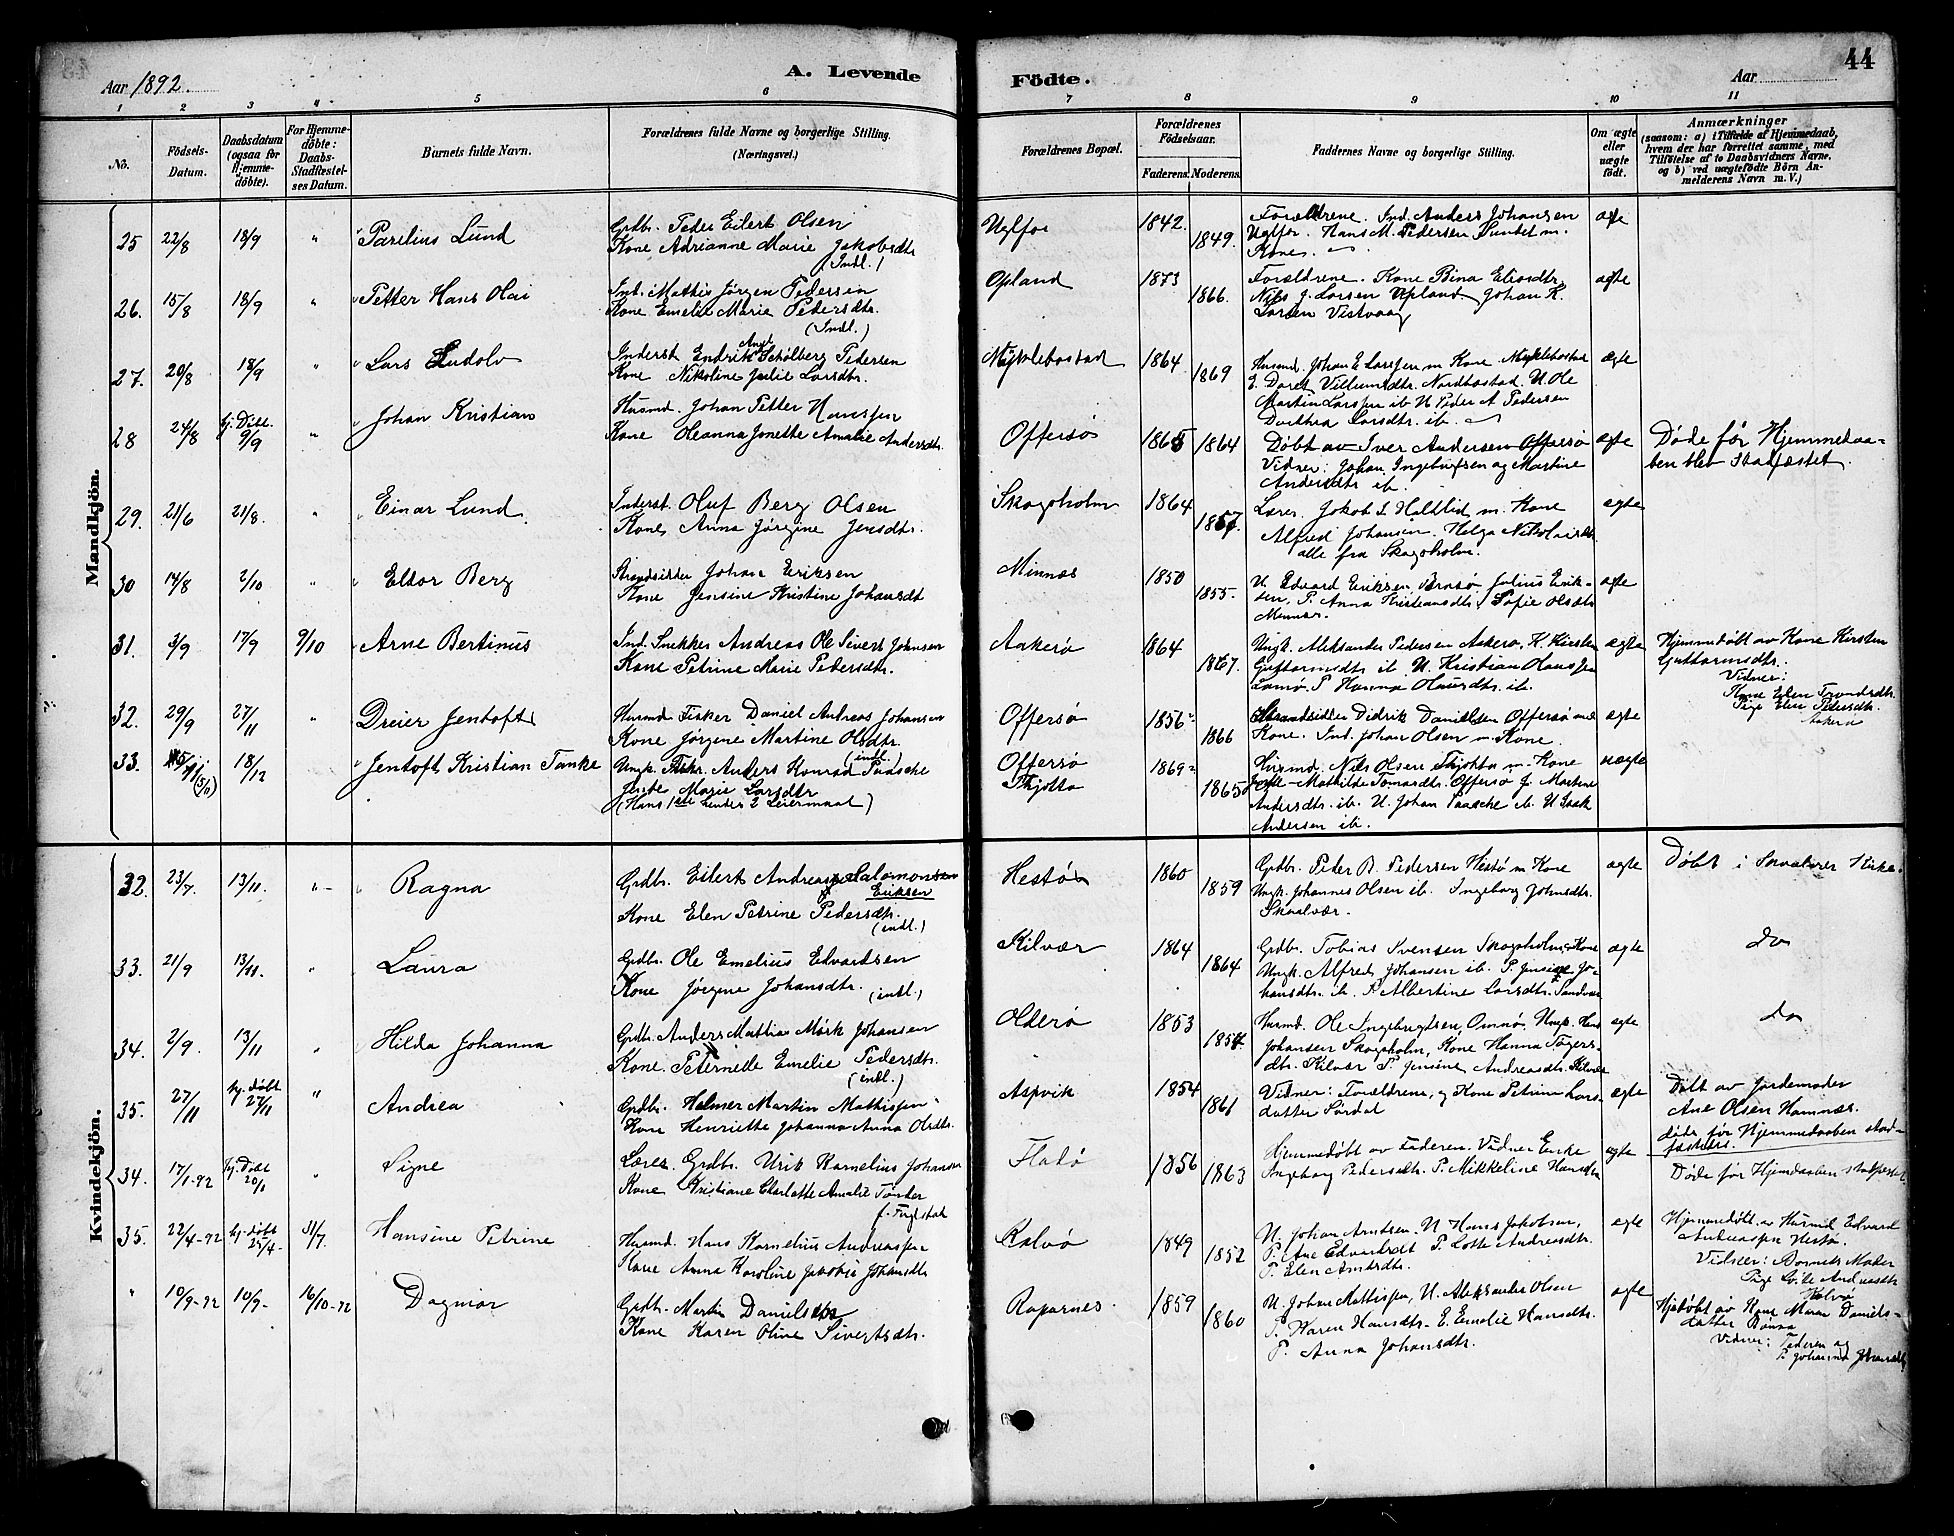 Aar 1892. A. Levende Födte. Aar 44
1 2 3 4 5 6 7 8 9 10 11
No. Födsels-Datum. Daabsdatum (ogsaa for Hjemmedöbte). For Hjemmedöbte: Daabs-Stadfæstelses Datum. Barnets fulde Navn. Forældrenes fulde Navne og borgerlige Stilling. (Næringsvei.) Forældrenes Bopæl. Forældrenes Födselsaar. Faderens. Moderens. Faddernes Navne og borgerlige Stilling. Om ægte eller uægte födt. Anmærkninger (saasom: a) i Tilfælde af Hjemmedaab, hvem der har forrettet samme, med Tilföielse af to Daabsvidners Navne, og b) ved uægtefödte Börn Anmelderens Navn m. V.)
Mandkjön.
25 22/8 18/9 " Parelius Lund Grdbr. Peder Eilert Olsen
Kone Adrianne Marie Jakobsdtr (Indl.)
1842. 1849. Forældrene. Ind. Anders Johansen
Hans M. Pedersen Sundet m. Kone. ægte
26. 15/8 18/9 " Petter Hans Olai Ind. Mathis Jørgen Pedersen
Kone Emelie Marie Pedersdtr. (Indl.)
Opland 1873 1866. Forældrene. Kone Bina Eliasdtr,
Nils J. Larsen Upland Johan K.
Larsen Vistvaag ægte
27. 20/8 18/9 " Lars Ludolv Inderst Endrik Angt. Schølberg Pedersen
Kone Nikoline Julie Larsdtr.
Myklebostad 1864 1869 Husmd. Johan E Larssen m Kone Myklebostad
E. Doret Villumsdtr. Nordbostad. U. Ole
Martin Larssen ib U Peder A Pedersen
Dorthea Larsdtr. ib. ægte
28 24/8 hj. Döbt. 9/9 " Johan Kristian Husmd. Johan Petter Hanssen
Kone Oleanna Jonette Amalie Andersdtr.
Offersø 1865 1864 Døbt av Iver Andersen Offersø
Vidner: Johan Ingebrigtsen og Martine
Andersdtr ib. ægte Døde før Hjemmedaa-
ben blev stadfæstet.
29. 21/6 21/8. " Einar Lund. Inderst Oluf Berg Olsen
Kone Anna Jørgine Jensdtr.
Skogsholm 1864 1857. Lærer. Jakob L Haltlid m. Kone
Alfred Johansen. Helga Nikolaisdtr.
alle fra Skogsholm. ægte
30 14/8 2/10 " Eldor Berg Strandsidder Johan Eriksen
Kone Jensine Kristine Johansdt
Minnes 1850 1855. U. Edvard Eriksen Julius Erik-
sen, P. Anna Kristiansdtr, Sofie Olsdtr
ægte
31. 3/9 17/9 9/10 Arne Bertinus Ind. Snekker Andreas Ole Sivert Johnsen
Kone Petrine Marie Pedersdtr.
Aakerø 1864 1867. Ungk. Aleksander Pedersen Aakerø, K. Kirsten
Guttormsdtr ib U. Kristian Hanssen
P Hanna Olausdtr. ib. ægte Hjemmedøbt av Kone Kirsten
Guttormsdtr.
Vidner:
Kone Elen Trondsdtr.
Pige Elen Pedersdtr.
Aakerø
32. 29/9 27/11 " Dreier Jentoft Husmd Fisker Daniel Andreas Johansen
Kone Jørgine Martine Olsdtr. (indl.)
Offersø 1856 1866 Strandsidder Didrik Danielsen Offersø m
Kone. Ind. Johan Olsen m. Kone. ægte
33. (15/11) 18/12 " Jentoft Kristian Tanke Ungk. Fiskr. Anders Konrad Paasche
Marie Larsdtr
(Hans 1ste hendes 2 Leiermaal)
Offersø
Thjøtta 1869 1865 Husmd. Nils Olsen Thjøtta m. Kone
Mathilde Tomasdtr. Offersø J. Martine
Andersdtr. ib. U. Johan Paasche ib. U Isak
Andersen ib. uægte
Kvindekjön.
32. 23/7. 13/11. " Ragna Grdbr. Eilert Andreas Salomonsen
Eriksen
Kone Elen Petrine Pedersdtr. (indl.)
Hestø 1860 1859 Grdbr. Peder B. Pedersen Hestø m Kone
Ungk. Johannes Olsen ib. Ingeborg Johnsdtr.
Skaalvær. ægte Døbt i Skaalvær Kirke.
33. 21/9 13/11. " Laura Grdbr. Ole Emelius Edvardsen
Kone Jørgine Johansdtr. (indl.)
Kilvær 1864 1864 Grdbr. Tobias Svensen Skogsholm, Kone
Ungk. Alfred Johansen ib. P. Jensine Jo-
hansdtr. ib. P Albertine Larsdtr. Sandvær ægte do
34. 2/9. 13/11 " Hilda Johanna Grdbr. Anders Mathias Mørk Johansen
Kone. Peternelle Emelie Pedersdtr. (indl.)
Olderø 1853 1854. Husmd. Ole Ingebrigtsen, Omnø. Ungk. Hans
Johansen Skogsholm, Kone Hanna
dtr. Kilvær P. Jensine Andreasdtr. Kilvær ægte do
35. 27/11 hj. døbt 27/11 " Andrea Grdbr. Helmer Martin Mathissen
Kone Henriette Johanna Anna Olsdtr.
Aspvik 1854 1861 Vidner: Forældrene, og Kone Petrine Lars-
datter Sørdal ægte Døbt av Jordemoder
Ane Olsen Hamnæs.
døde før Hjemmedaaben stad-
fæstedes.
34. 17/1-92 hj. Döbt 20/1 " Signe Lærer. Grdbr. Urik Kornelius Johansen
Kone Kristiane Charlotte Amalie Tønder
f. Fuglstad
Flatø 1856 1863 Hjemmedøbt av Faderen. Vidner Enke
Ingeborg Pedersdtr. P. Mikkeline Hansdtr ægte Døde før Hjemdaaben stadfæstet.
35. 22/4-92 hj. døbt 25/4- 31/7. Hansine Petrine Husmd. Hans Kornelius Andreassen
Kone Anna Karoline Jakobie Johansdtr
Kalvø 1849 1852 U. Johan Arntsen. U Hans Jakobsen,
P. Ane Edvardsdt P. Lotte Andreasdtr.
P. Elen Arntsdtr. ægte Hjemmedøbt av Husmd Edvard
Andreassen Hestø.
Vidner: Barnets Moder
Kalvø
" 10/9-92 10/9- 16/10-92 Dagmar Grdbr. Martin Danielsen
Kone Karen Oline Sivertsdtr.
Raparnes. 1859 1860 U. Johan Mathissen, U. Aleksander Olsen
P. Karen Hansdtr. E. Emelie Hansdtr.
P. Anna Johansdtr. ægte Hjdøbt av Kone Maren Daniels-
datter Rønsø
Vidner: Faderen og
P. Johanna